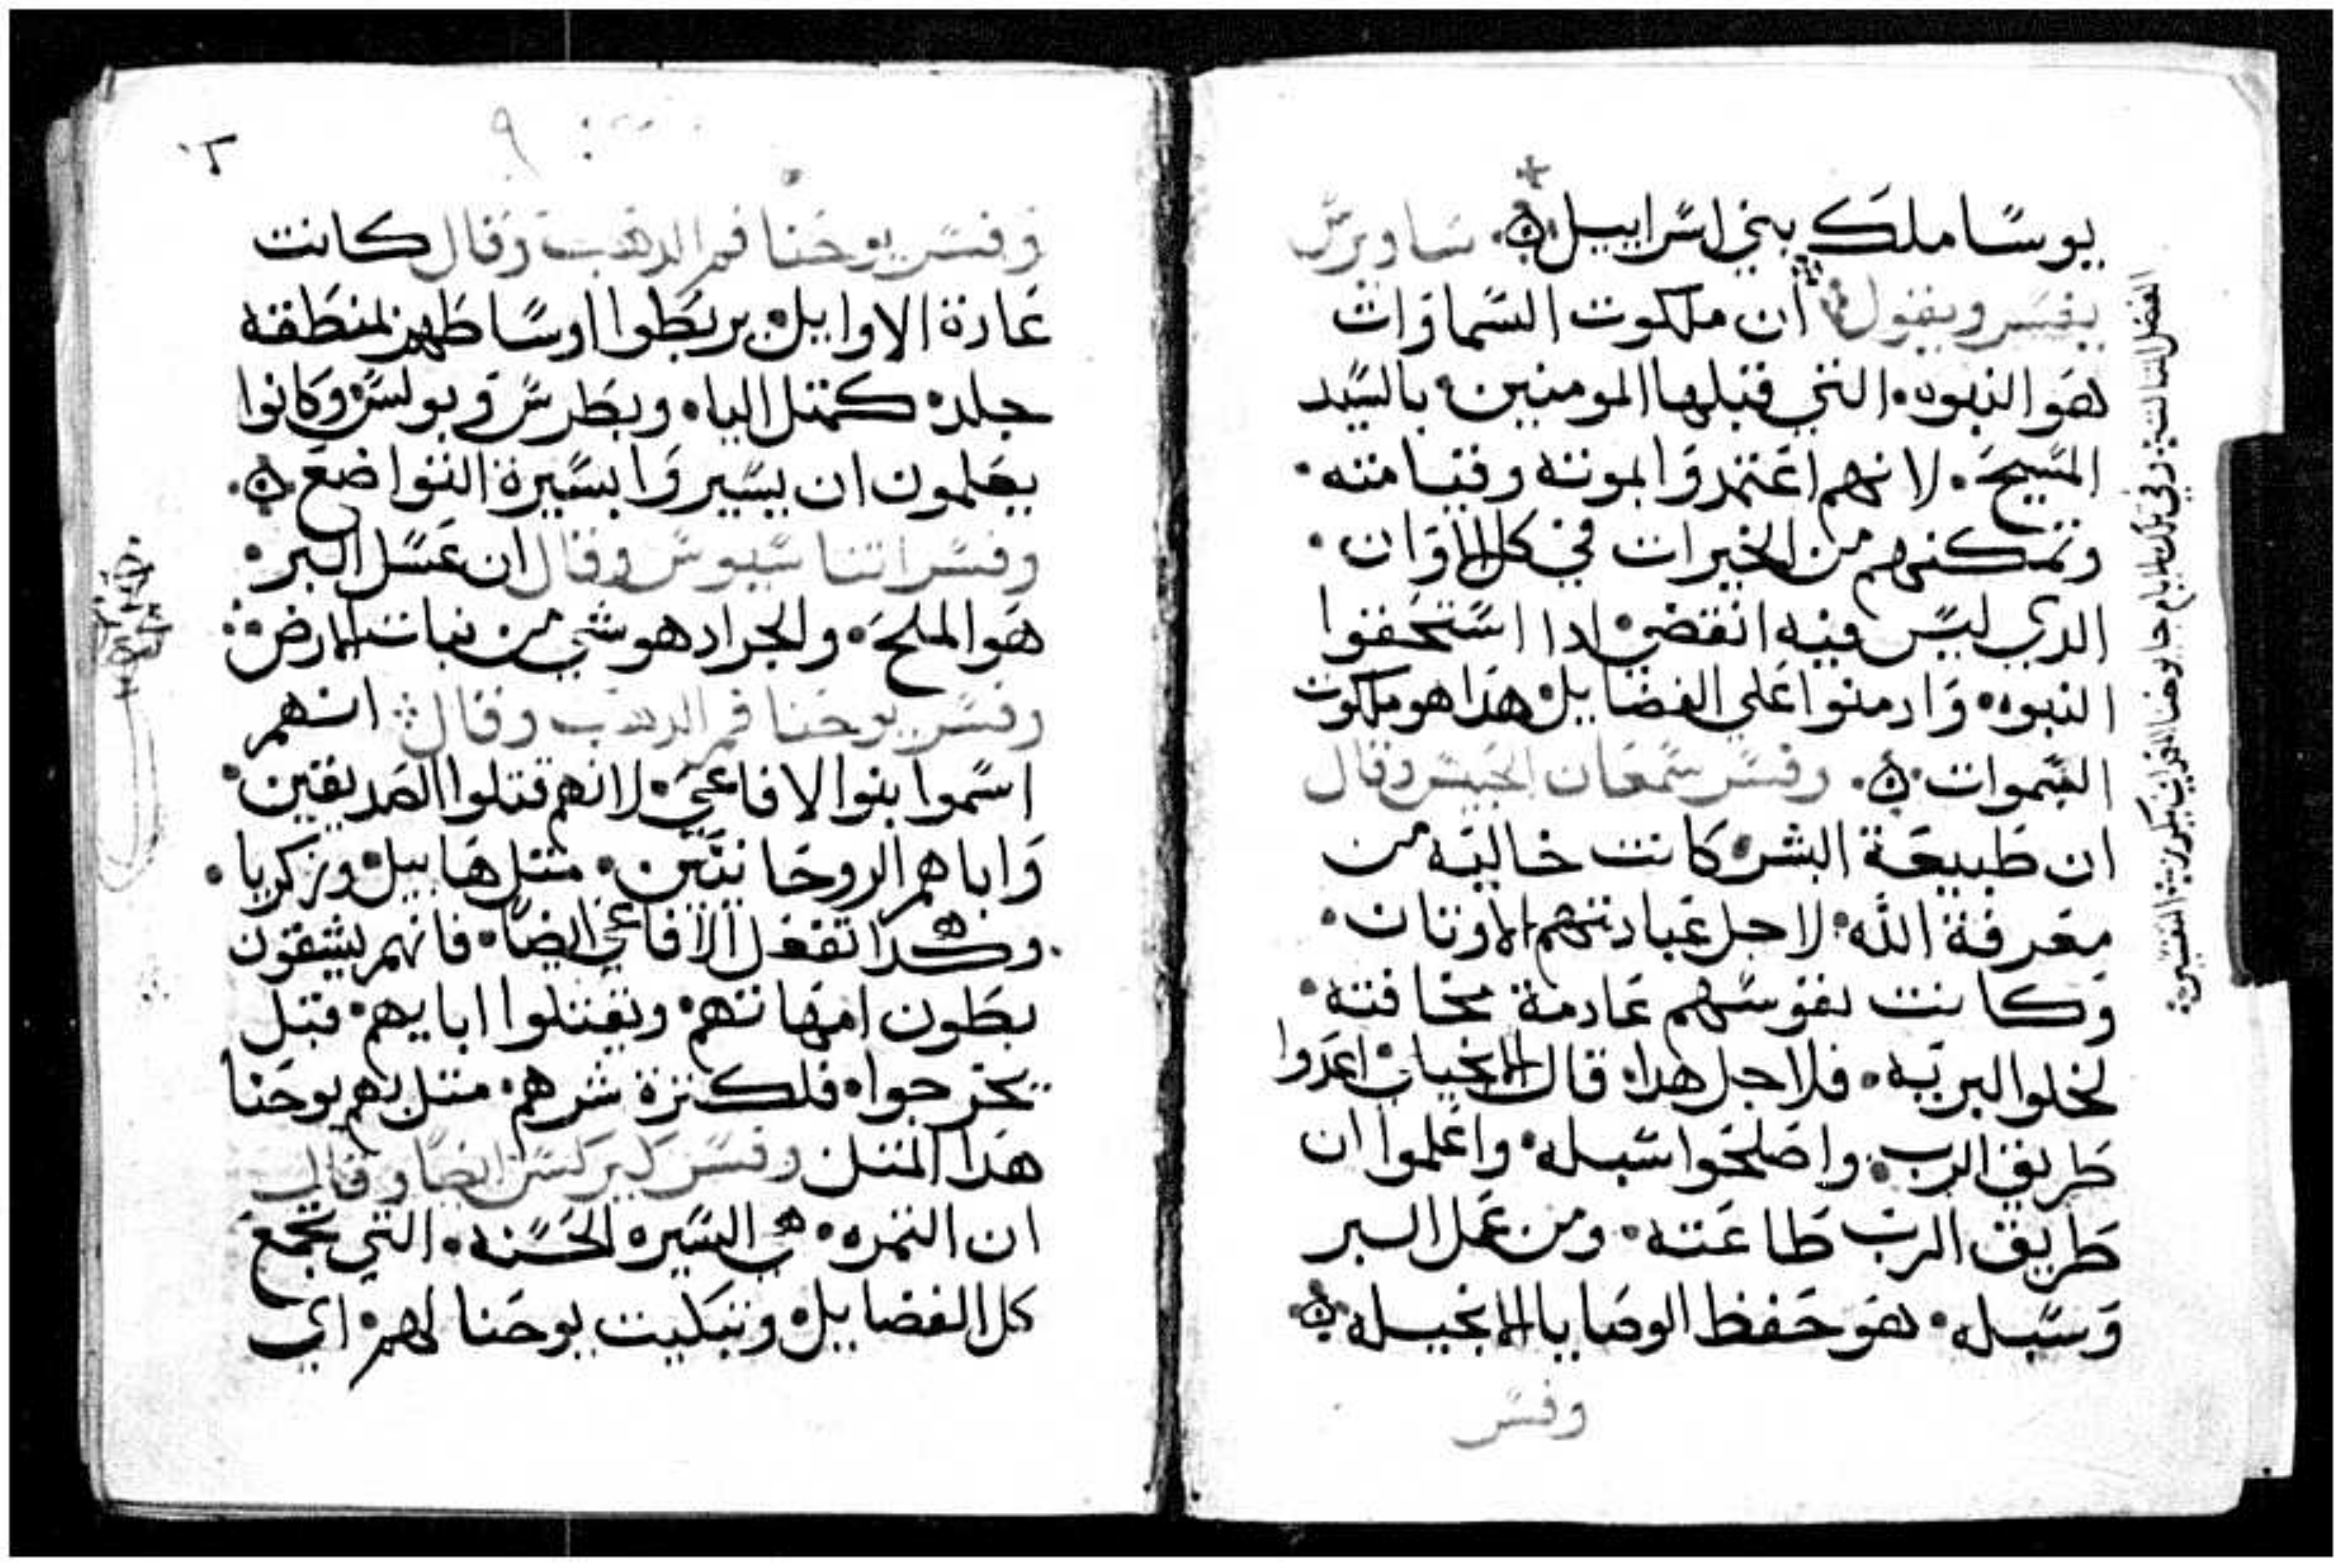 يوسا ملك بني اسراييل ساويرس
يفسر ويقول ان ملكوت السماوات
هو النبوه التي قبلها المومنين بالسيد
المسيح لانهم اعتمدوا بموته وقيامته
وتمكنهم من الخيرات في كل الاوان
الدي ليس فيه انقضي ادا استحقوا
النبوه وادمنوا علي الفضايل هدا هو ملكوت
السموات وفسر سمعان الحبيس وقال
ان طبيعة البشر كانت خاليه من
معرفة الله لاجل عبادتهم الاوتان
وكانت نفوسهم عادمة مخافته
لخلوا البريه فلاجل هدا قال الانجيل اعدوا
طريق الرب واصلحوا سبله واعلموا ان
طريق الرب طاعته ومن عمل البر
وسبله هو حفظ الوصايا الانجيله
وفسر
الفصل التالت وفي تلك الايام جا يوحنا
وفسر يوحنا فم الدهب وقال كانت
عادة الاوايل يربطوا اوساطهم بمنطقه
جلد كمتل اليا وبطرس وبولس وكانوا
يعلمون ان يسيروا بسيرة التواضع
وفسر اتناسيوس وقال ان عسل البر
هو الملح والجراد هو شي من نبات الارض
وفسر يوحنا فم الدهب وقال انهم
اسموا بنوا الافاعي لانهم قتلوا الصديقين
واباهم الروحانيين متل هابيل وزكريا
وهكدا تفعل الافاعي ايضا فانهم يشقون
بطون امهاتهم ويقتلوا ابايهم قبل
يخرجوا فلكترة شرهم متل بهم يوحنا
هدا المتل وفسر كيركس ايضا وقال
ان التمره هي السيره الحسنه التي تجمع
كل الفضايل وتبكيت يوحنا لهم اي